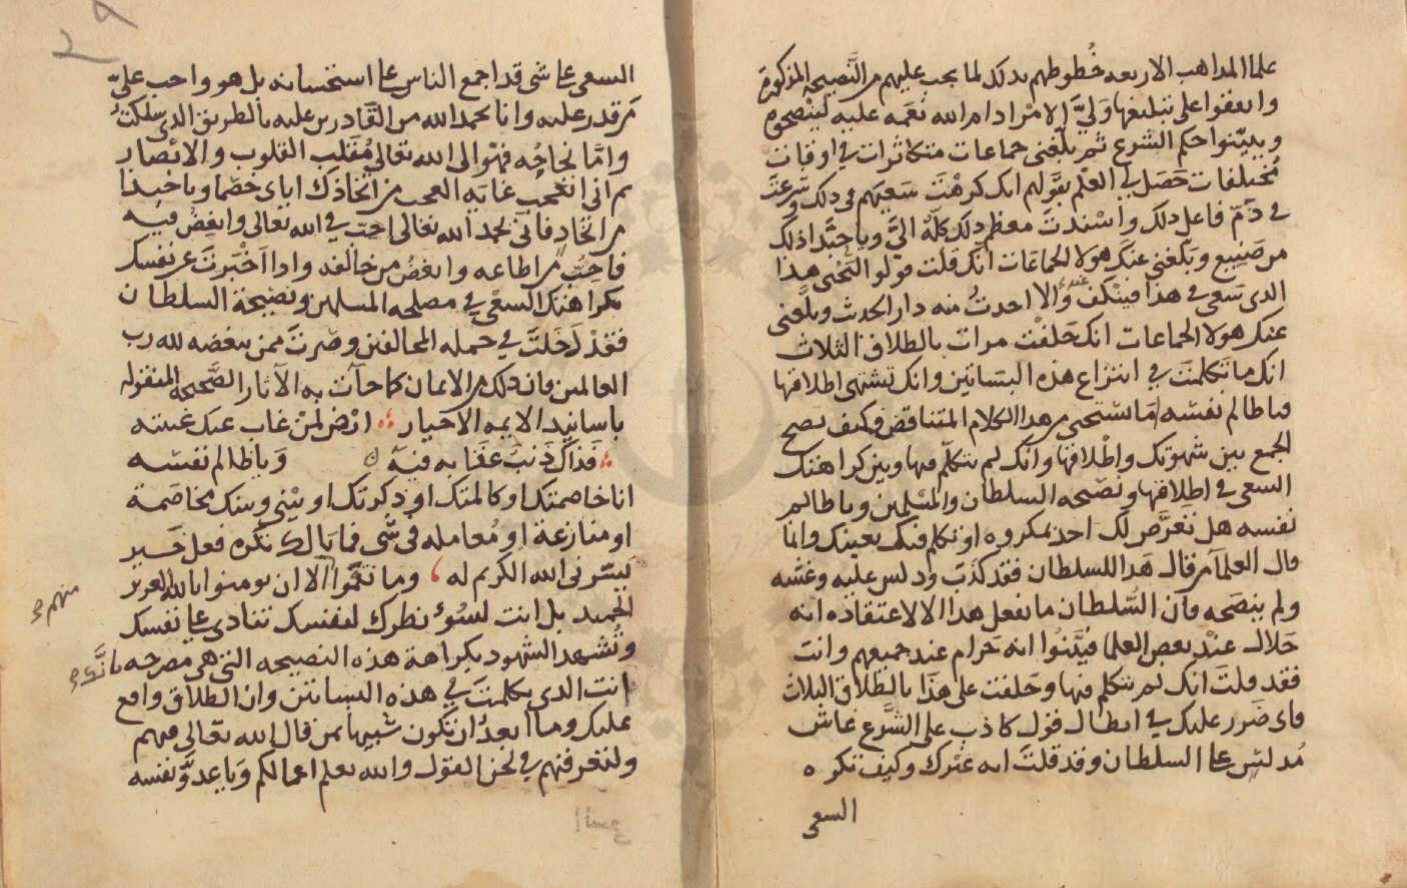 علما المداهب الاربعه خُطوطهم بدلك لما يجب عليهم من النَّصيحة المذكورة
واتفقوا على تبليغها وَليَّ الامْر ادام الله نعَمه عليه لينصحوه
ويبيّنوا حكم الشرع ثم بلَغنى جماعات متكاثرات في اوقات
مختلفات حَصَل لي العِلم بقولهم انك كرهْتَ سَعيَهم في دلك وشرعْتَ
في ذَمّ فاعل دلك واسْندتَ معظم ذلك كلَّهُ اليَّ ويا حبَّذا ذلك
من صَنيع وبَلغنى عنك هولا الجماعات انك قلت قولوا لليحْيى هذا
الدى سَعى في هذا فينكف عنه والا اخدتُ منه دار الحديث وبلغنى
عنك هولا الجماعات انك حَلفْت مرات بالطلاق الثلاث
انك ما تكلمتَ في انتزاع هذه البسَاتين وانك تشتهى اطلاقها
فيا ظالم نفسه اما تستحى من هدا الكلام المتناقض وكيف يصح
الجمع بين شهوتك واطْلاقها وانك لم تتكلّم فيها وبين كراهتك
السعى في اطلاقها ونصيحه السلطان والمسْلمين ويا ظالم
نفسه هل تعَرَّض لك احد بمكروه او تكلم فيك بعينك وانما
قال العلمآ من قال هَدا للسلطان فقد كذبَ ودلس عليه وغشه
ولم ينصَحه فان السُّلطان ما يفعل هدا الا لاعتقاده انه
حَلال عنْد بعض العلما فبيَّنُوا انه حَرام عند جميعهم وانت
فقد قلتَ انك لم تتكلم فيها وحَلفت على هَذا بالطلاق الثلاث
فاى ضَرر عليك في ابطال قول كاذب على الشَّرع غاش
مُدلس على السلطان وقد قلتَ انه غيرك وكيف تكره
السعى
السعى على شى قد اجمع الناس على استحسانه بل هو واجب على
من قدر عليه وانا بحمد الله من القَادرين عليه بالطريق الدى سَلكتُ
وامَّا نجاحُه فهُوَ الى الله تعالى مُقلب القلوب والابْصار
ثم انى اتعَجب غايه العجب من اتخاذك اياى خصما ويا حبَذا
من اتخاذٍ فانى بحمد الله تعالى احب في الله تعالى وابغض فيه
فاحب من اطاعه وابغض من خالفه وادا اخبَرتَ عن نفسك
بكراهتك السعْى في مصلحه المسلمين ونصيحة السلطان
فقدْ دَخلتَ في جمله المخالفين وصِرتَ ممن نبغضه لله رب
العالمين فان دلك من الايمان كما جآت به الآثار الصَّحيحه المنقوله
باسانيد الايمه الاخيار ارْض لمنْ غاب عنك غيبته
فذاك ذنبٌ عقَابه فيه ويا ظالم نفسْه
انا خاصمتك او كالمتك او ذكرتك او بيْني وبينك مخاصَمة
او منازعة او مُعامله في شى فما بَالك تكره فعل خَير
يسّرنى الله الكريم له وما نقمُوا الا ان يومنوا بالله العزيز
منهم
الحميد بل انت لسُوء نظرك لنفسك تنادى على نفسك
وتُشهد الشهود بكراهة هذه النصيحه التى هى مصرحه بانَّك
انت الدى تكلمتَ في هذه البساتين وان الطلاق واقع
عليك وما ابعدُ ان تكون شبيها بمن قال الله تعالى فيهم
ولتعرفنهم في لحن القول والله يعلم اعمالكم وَيا عدوَّ نفسه